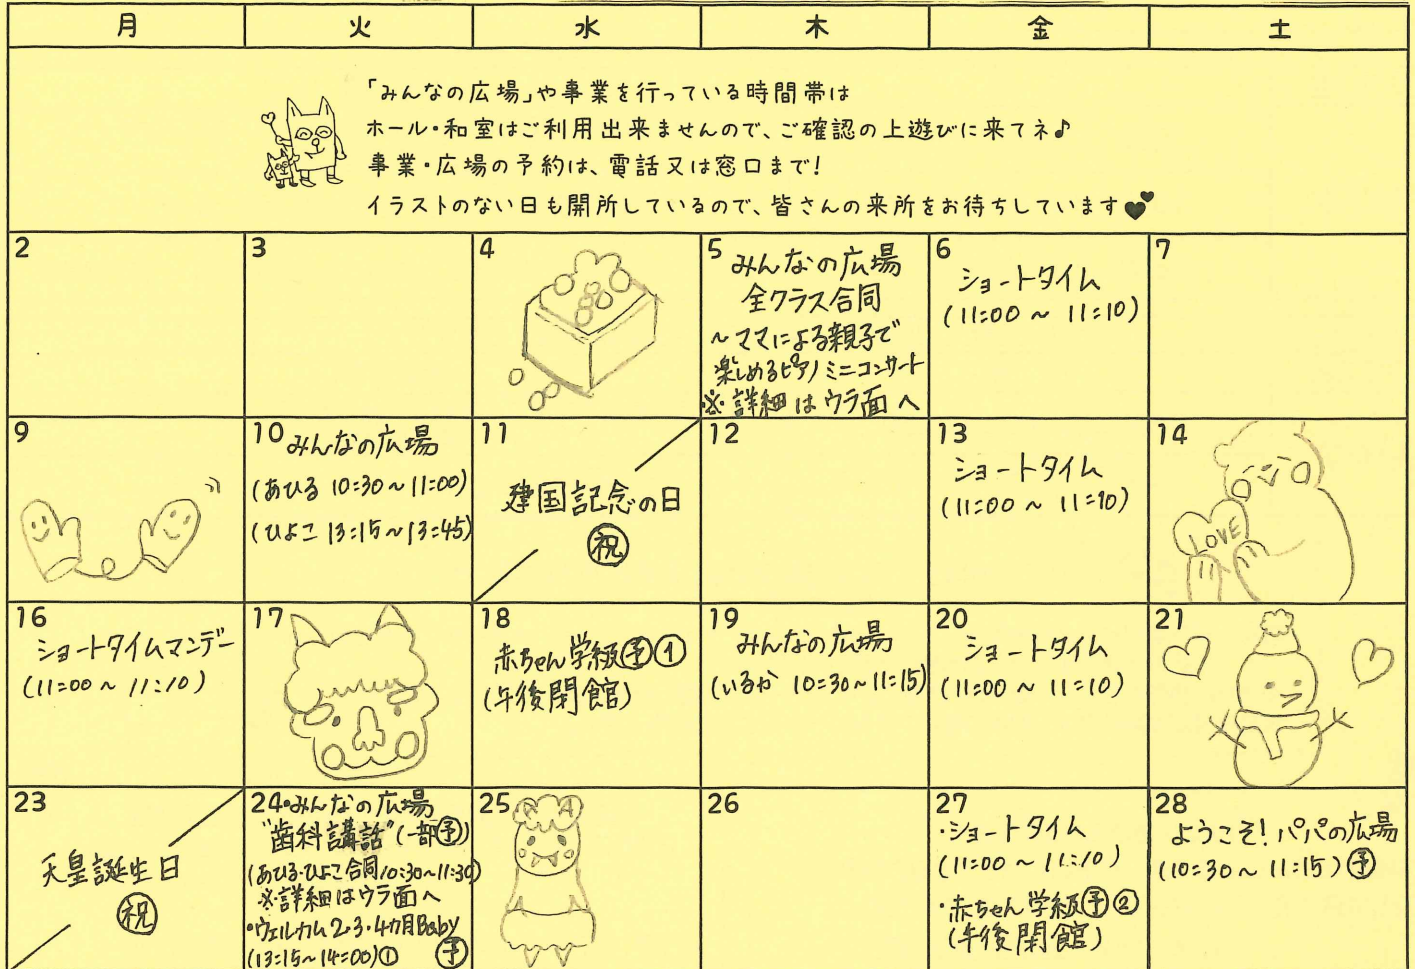 月 火 水 木 金 土
「みんなの広場」や事業を行っている時間帯は
ホール・和室はご利用出来ませんので、ご確認の上遊びに来てネ♪
事業・広場の予約は、電話又は窓口まで!
イラストのない日も開所しているので、皆さんの来所をお待ちしています
2
3
4
5 みんなの広場
全クラス合同
～ママによる親子で
楽しめるピアノミニコンサート
※詳細はウラ面へ
6
ショートタイム
(11:00～11:10)
7
9
10 みんなの広場
(あひる 10:30～11:00)
(ひよこ 13:15～13:45)
11
建国記念の日
祝
12
13
ショートタイム
(11:00～11:10)
14
LOVE
16
ショートタイムマンデー
(11:00～11:10)
17
18
赤ちゃん学級予①
(午後閉館)
19
みんなの広場
(いるか 10:30～11:15)
20
ショートタイム
(11:00～11:10)
21
23
天皇誕生日
祝
24・みんなの広場
"歯科講話"(一部予)
(あひる・ひよこ合同10:30～11:30)
※詳細はウラ面へ
・ウェルカム2・3・4カ月Baby
(13:15～14:00)① 予
25
26
27
・ショートタイム
(11:00～11:10)
・赤ちゃん学級予②
(午後閉館)
28
ようこそ!パパの広場
(10:30～11:15)予